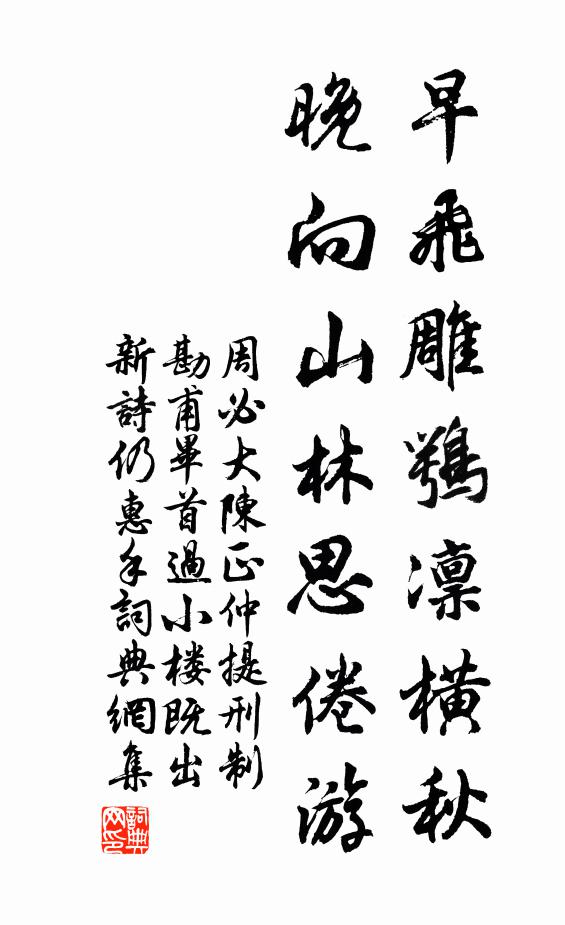 早飛雕鶚凜橫秋
晚向山林思倦游
周必大陳正仲提刑制
勘甫畢首過小楼既出
新詩仍惠手詞典網集
詞典網印